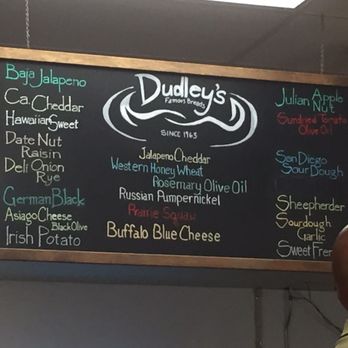 Baja Jalapeno
Ca. Cheddar
Hawaiian Sweet
Date Nut
Raisin
Deli Onion
Rye
German Black
Asiago Cheese
Black Olive
Irish Potato
Dudley's
Famous Breads
SINCE 1963
Jalapeno Cheddar
Western Honey Wheat
Rosemary Olive Oil
Russian Pumpernickel
Prairie Squaw
Buffalo Blue Cheese
Julian Apple
Nut
Sundried Tomato
Olive Oil
San Diego
Sour Dough
Sheepherder
Sourdough
Garlic
Sweet Fren